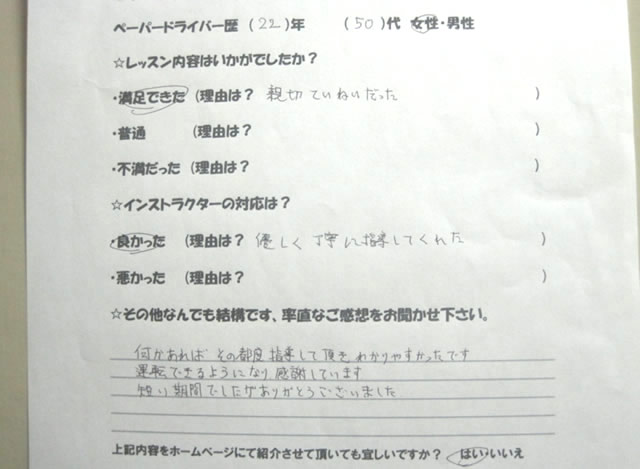 ペーパードライバー歴 (22)年 (50)代 女性・男性
☆レッスン内容はいかがでしたか?
・満足できた (理由は? 親切ていねいだった )
・普通 (理由は? )
・不満だった (理由は? )
☆インストラクターの対応は?
・良かった (理由は? 優しく丁寧に指導してくれた )
・悪かった (理由は? )
☆その他なんでも結構です、率直なご感想をお聞かせ下さい。
何かあれば その都度 指導して頂き わかりやすかったです
運転できるようになり 感謝しています
短い期間でしたがありがとうございました
上記内容をホームページにて紹介させて頂いても宜しいですか? はい・いいえ